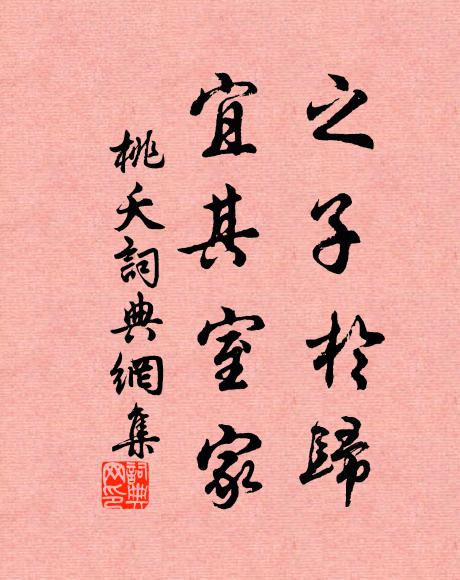 之子於歸
宜其室家
桃夭詞典網集
詞典網印